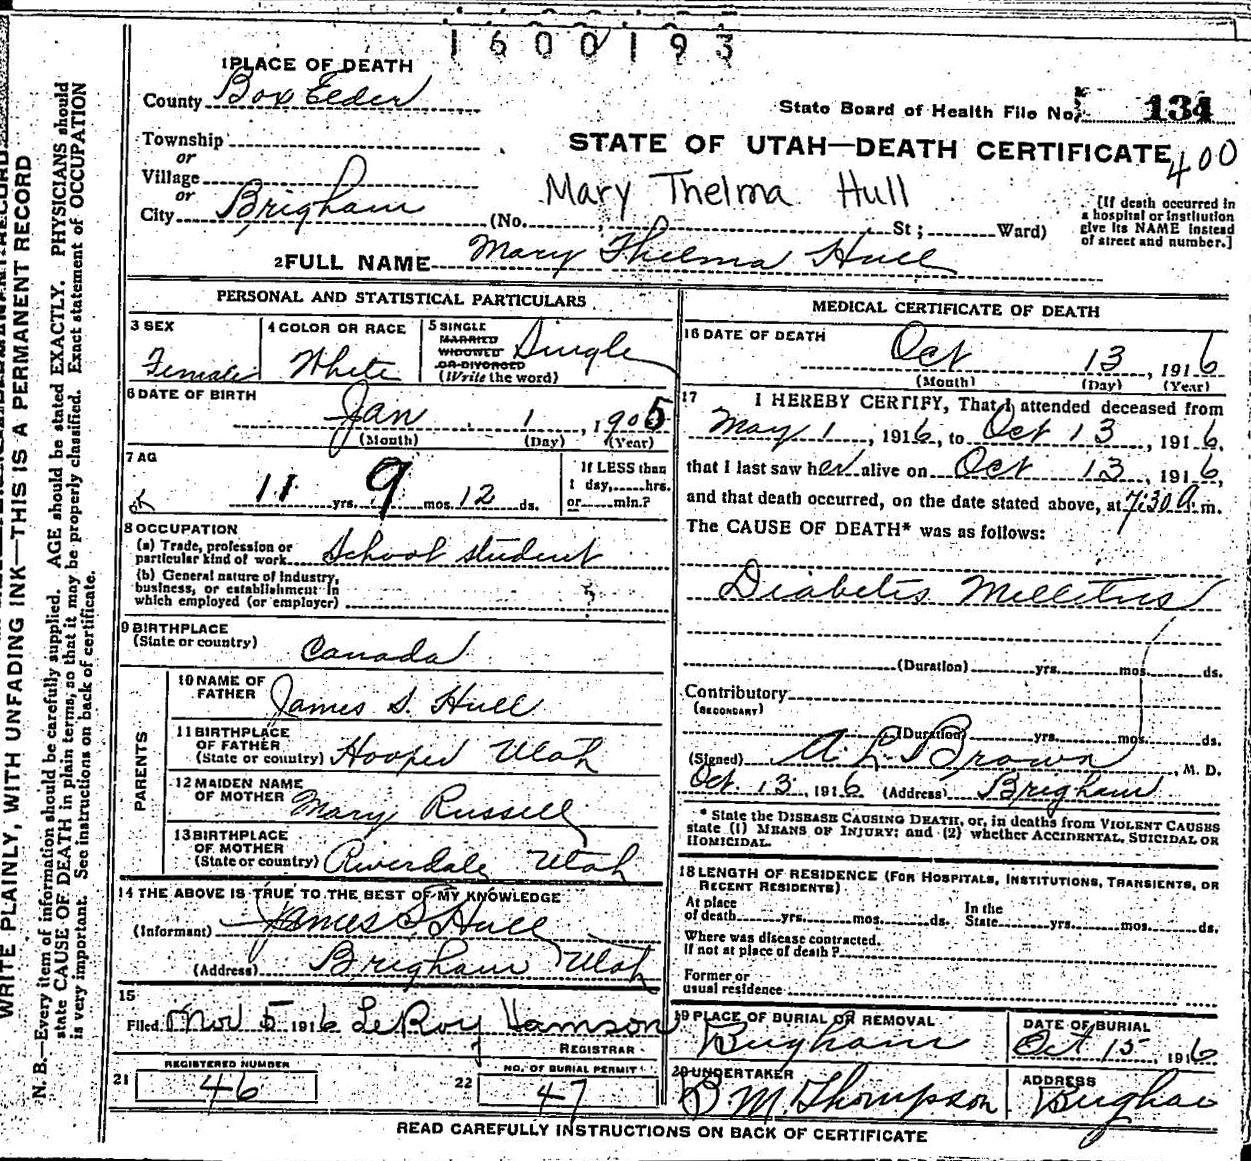 1600193
1 PLACE OF DEATH
County Box Elder
State Board of Health File No. 134
Township
or
STATE OF UTAH—DEATH CERTIFICATE 400
Village
or
Mary Thelma Hull
City Brigham (No. St; Ward)
[If death occurred in
a hospital or institution
give its NAME instead
of street and number.]
2 FULL NAME Mary Thelma Hull
PERSONAL AND STATISTICAL PARTICULARS
3 SEX
Female
4 COLOR OR RACE
White
5 SINGLE
MARRIED
WIDOWED
OR DIVORCED
(Write the word)
Single
6 DATE OF BIRTH
Jan 1, 1905
(Month) (Day) (Year)
7 AG
11 yrs. 9 mos. 12 ds.
If LESS than
1 day, hrs.
or min.?
8 OCCUPATION
(a) Trade, profession or
particular kind of work School student
(b) General nature of industry,
business, or establishment in
which employed (or employer)
9 BIRTHPLACE
(State or country) Canada
PARENTS
10 NAME OF
FATHER James S. Hull
11 BIRTHPLACE
OF FATHER
(State or country) Hooper Utah
12 MAIDEN NAME
OF MOTHER Mary Russell
13 BIRTHPLACE
OF MOTHER
(State or country) Riverdale, Utah
14 THE ABOVE IS TRUE TO THE BEST OF MY KNOWLEDGE
(Informant) James S Hull
(Address) Brigham Utah
15
Filed Nov 5 1916 LeRoy Hamson
REGISTRAR
REGISTERED NUMBER
21 46
NO. OF BURIAL PERMIT
22 47
MEDICAL CERTIFICATE OF DEATH
16 DATE OF DEATH
Oct 13, 1916
(Month) (Day) (Year)
17 I HEREBY CERTIFY, That I attended deceased from
May 1, 1916, to Oct 13, 1916,
that I last saw her alive on Oct 13, 1916,
and that death occurred, on the date stated above, at 7:30 A. m.
The CAUSE OF DEATH* was as follows:
Diabetis Mellitus
(Duration) yrs. mos. ds.
Contributory
(SECONDARY)
(Duration) yrs. mos. ds.
(Signed) A. L. Brown, M. D.
Oct. 13, 1916 (Address) Brigham
* State the DISEASE CAUSING DEATH, or, in deaths from VIOLENT CAUSES
state (1) MEANS OF INJURY; and (2) whether ACCIDENTAL, SUICIDAL OR
HOMICIDAL.
18 LENGTH OF RESIDENCE (FOR HOSPITALS, INSTITUTIONS, TRANSIENTS, OR
RECENT RESIDENTS)
At place
of death yrs. mos. ds. In the
State yrs. mos. ds.
Where was disease contracted,
If not at place of death?
Former or
usual residence
19 PLACE OF BURIAL OR REMOVAL
Brigham
DATE OF BURIAL
Oct 15, 1916
20 UNDERTAKER
B M. Thompson
ADDRESS
Brigham
READ CAREFULLY INSTRUCTIONS ON BACK OF CERTIFICATE
WRITE PLAINLY, WITH UNFADING INK—THIS IS A PERMANENT RECORD
N. B.—Every item of information should be carefully supplied. AGE should be stated EXACTLY. PHYSICIANS should
state CAUSE OF DEATH in plain terms, so that it may be properly classified. Exact statement of OCCUPATION
is very important. See instructions on back of certificate.